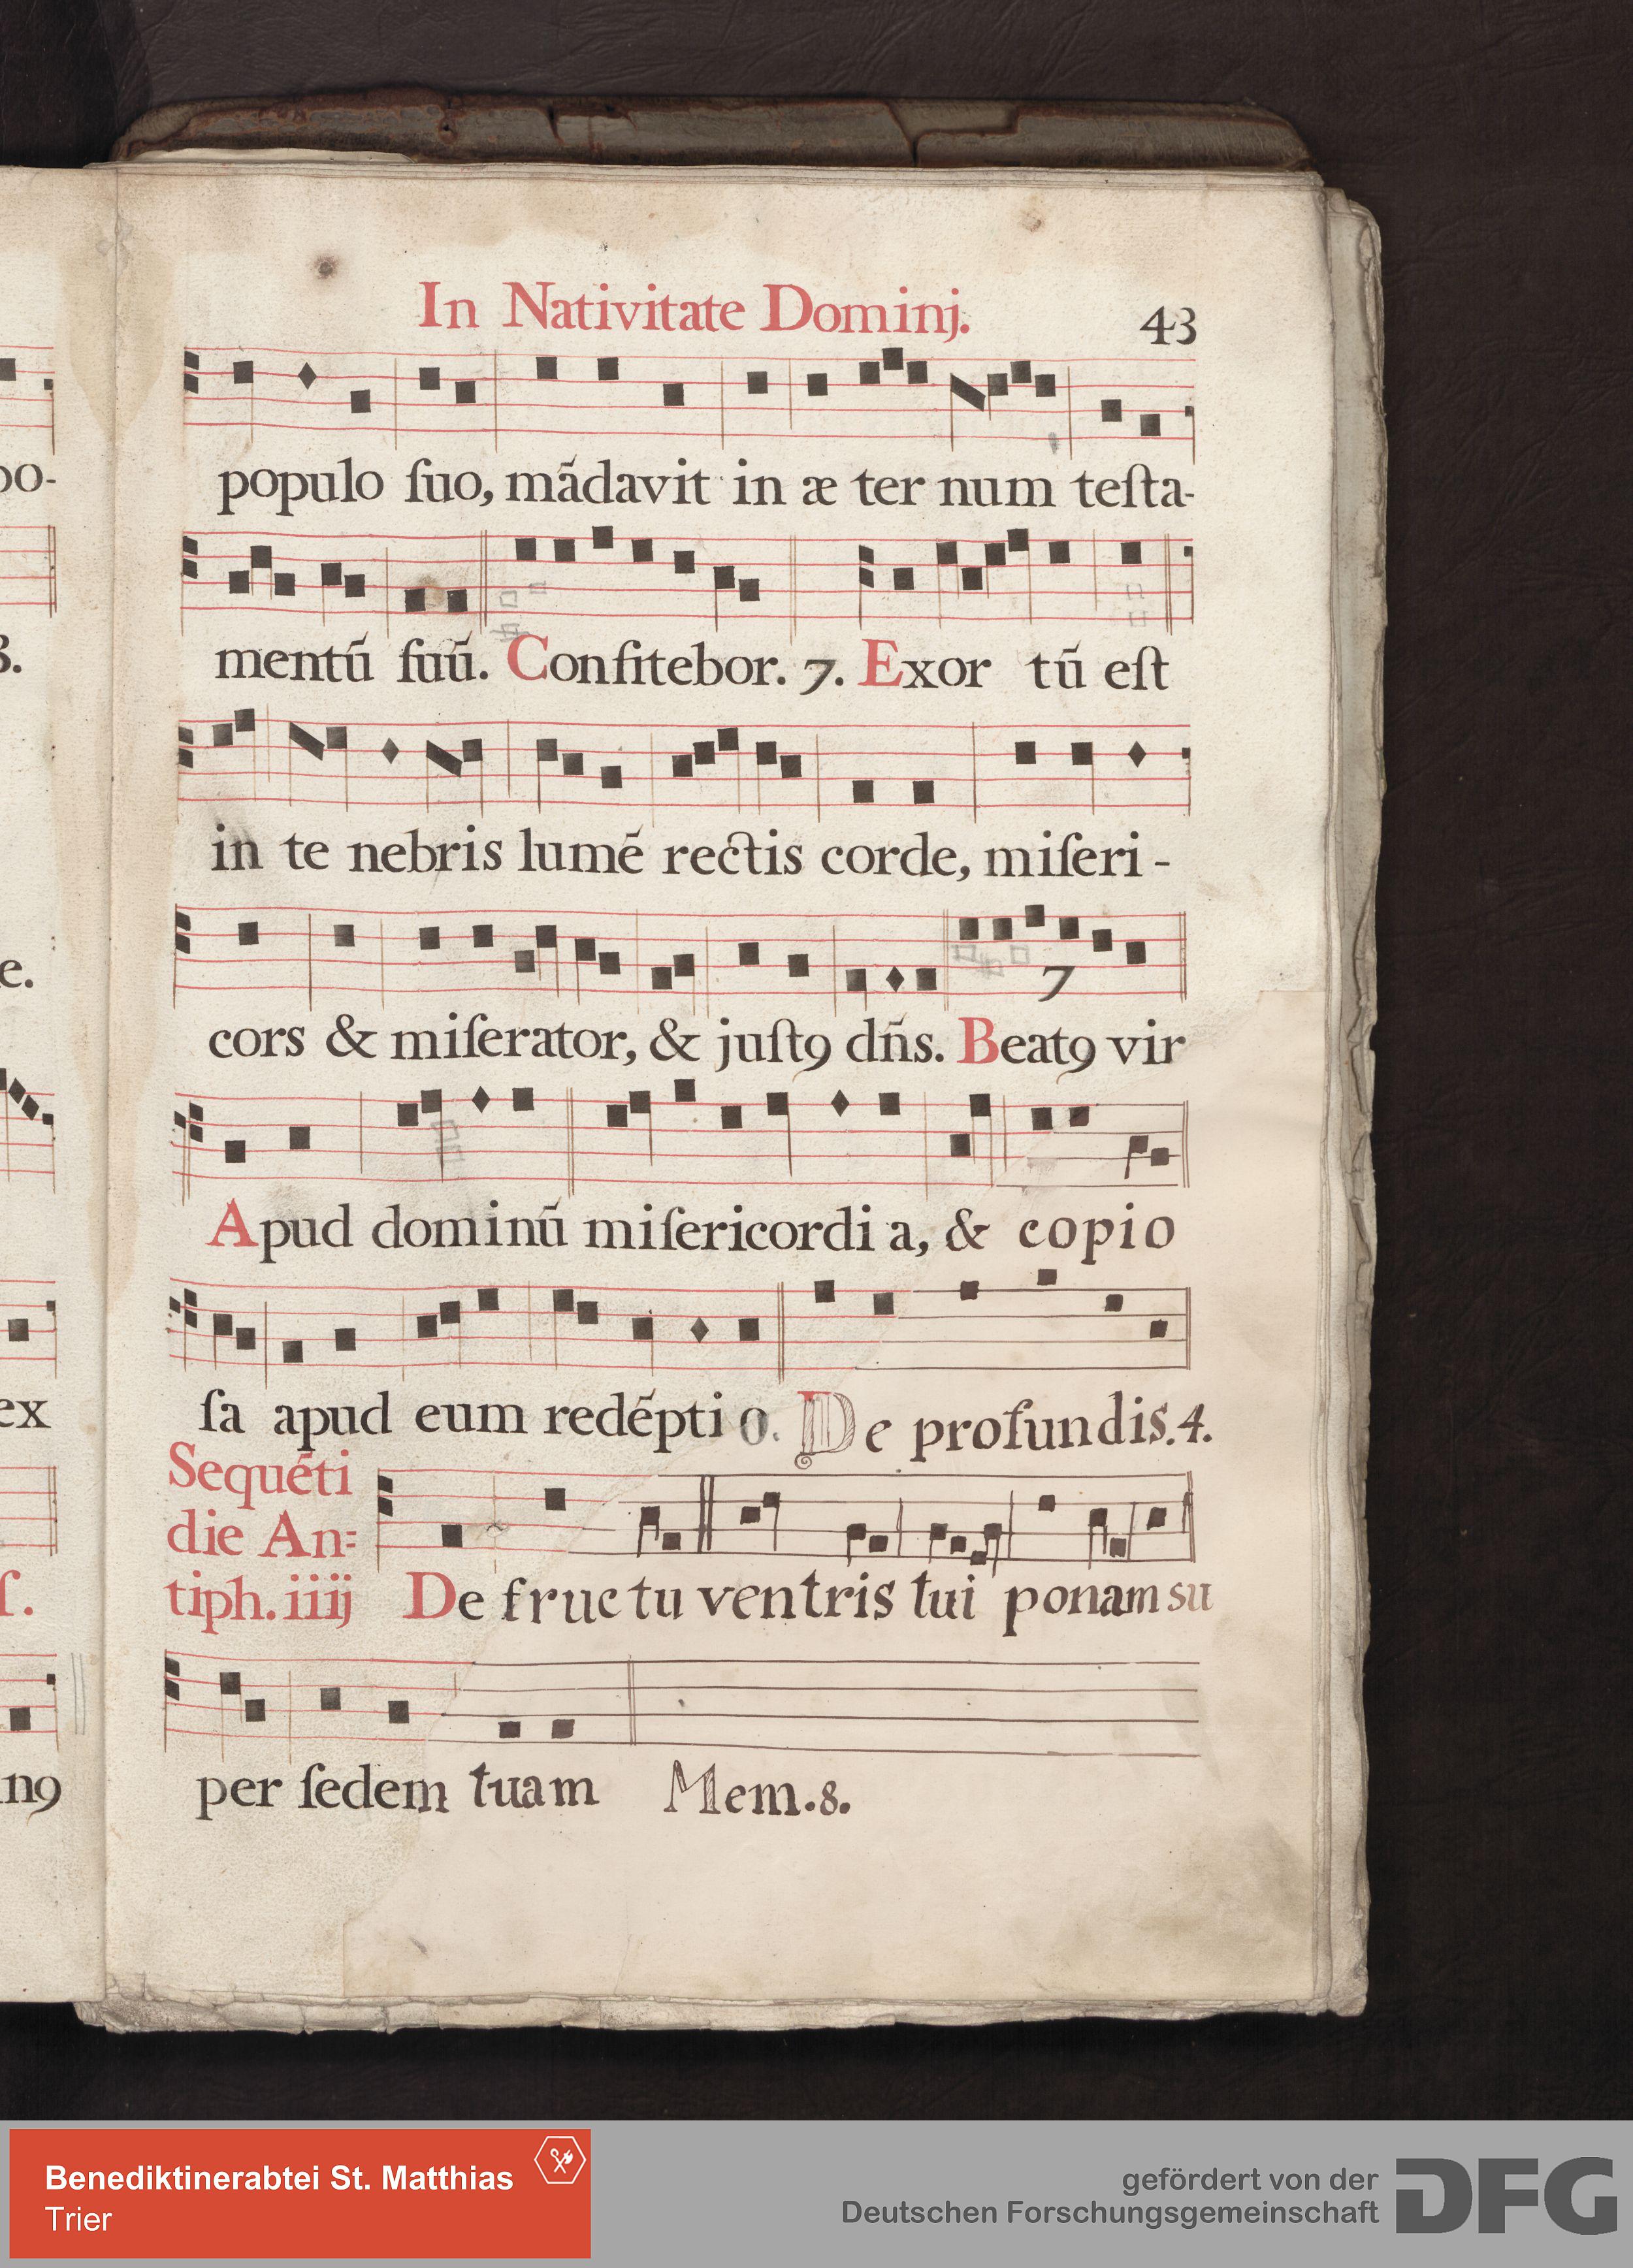 In Nativitate Dominj.
43
populo ſuo, mādavit in æ ter num teſta-
mentū ſuū. Confitebor. 7. Exor tū eſt
in te nebris lumē rectis corde, miſeri-
7
cors & miſerator, & juſtꝯ dn̄s. Beatꝯ vir
Apud dominū miſericordi a, & copio
ſa apud eum redēpti o. De profundis. 4.
Sequēti
die An=
tiph. iiij De fructu ventris tui ponam su
per ſedem tuam Mem. 8.
po-
3.
e.
ex
ſ.
nꝯ
Benediktinerabtei St. Matthias
Trier
gefördert von der
Deutschen Forschungsgemeinschaft
DFG